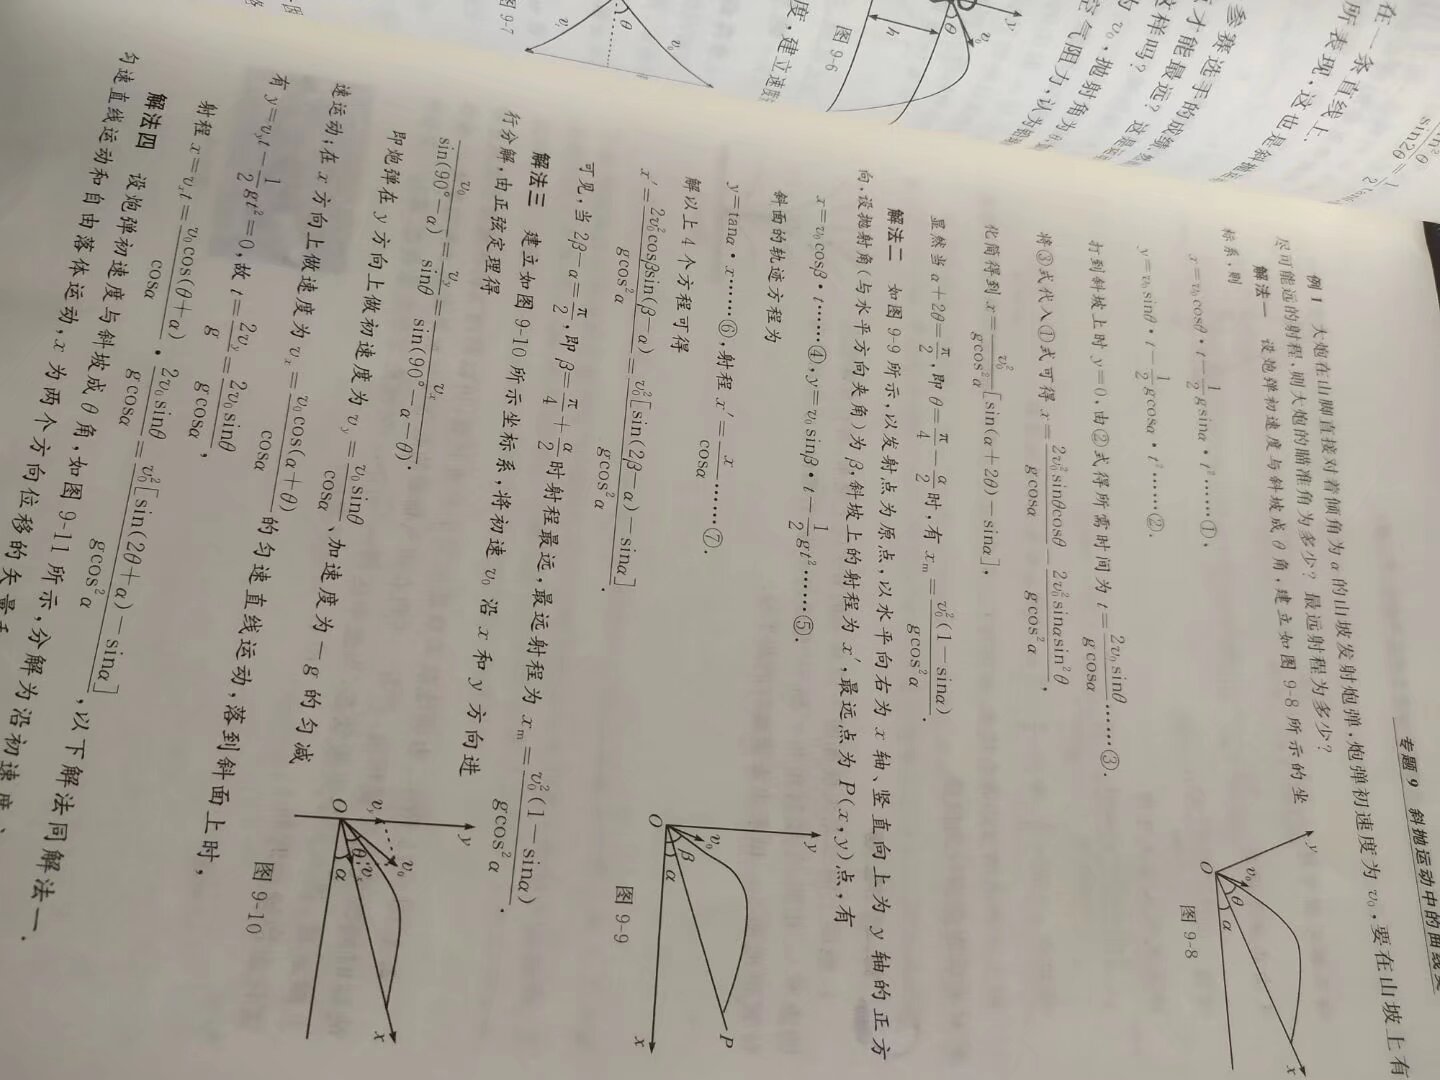 专题9 斜抛运动中的曲线美
例1 大炮在山脚直接对着倾角为α的山坡发射炮弹,炮弹初速度为v₀,要在山坡上有
尽可能远的射程,则大炮的瞄准角为多少?最远射程为多少?
解法一 设炮弹初速度与斜坡成θ角,建立如图9-8所示的坐
标系,则
x=v₀cosθ·t-\frac{1}{2}gsinα·t²……①,
y=v₀sinθ·t-\frac{1}{2}gcosα·t²……②.
打到斜坡上时y=0,由②式得所需时间为t=\frac{2v₀sinθ}{gcosα}……③.
将③式代入①式可得x=\frac{2v₀²sinθcosθ}{gcosα}-\frac{2v₀²sinαsin²θ}{gcos²α},
化简得到x=\frac{v₀²}{gcos²α}[sin(α+2θ)-sinα],
显然当α+2θ=\frac{π}{2},即θ=\frac{π}{4}-\frac{α}{2}时,有xₘ=\frac{v₀²(1-sinα)}{gcos²α}.
图9-8
y
v₀
θ
α
O
x
解法二 如图9-9所示,以发射点为原点,以水平向右为x轴、竖直向上为y轴的正方
向,设抛射角(与水平方向夹角)为β,斜坡上的射程为x′,最远点为P(x,y)点,有
x=v₀cosβ·t……④,y=v₀sinβ·t-\frac{1}{2}gt²……⑤.
斜面的轨迹方程为
y=tanα·x……⑥,射程x′=\frac{x}{cosα}……⑦.
解以上4个方程可得
x′=\frac{2v₀²cosβsin(β-α)}{gcos²α}=\frac{v₀²[sin(2β-α)-sinα]}{gcos²α}.
可见,当2β-α=\frac{π}{2},即β=\frac{π}{4}+\frac{α}{2}时射程最远,最远射程为xₘ=\frac{v₀²(1-sinα)}{gcos²α}.
y
v₀
β
α
O
P
x
图9-9
解法三 建立如图9-10所示坐标系,将初速v₀沿x和y方向进
行分解,由正弦定理得
\frac{v₀}{sin(90°-α)}=\frac{v_y}{sinθ}=\frac{vₓ}{sin(90°-α-θ)}.
即炮弹在y方向上做初速度为v_y=\frac{v₀sinθ}{cosα}、加速度为-g的匀减
速运动;在x方向上做速度为vₓ=\frac{v₀cos(α+θ)}{cosα}的匀速直线运动,落到斜面上时,
有y=v_yt-\frac{1}{2}gt²=0,故t=\frac{2v_y}{g}=\frac{2v₀sinθ}{gcosα},
射程x=vₓt=\frac{v₀cos(θ+α)}{cosα}·\frac{2v₀sinθ}{gcosα}=\frac{v₀²[sin(2θ+α)-sinα]}{gcos²α},以下解法同解法一.
y
v₀
θ
α
O
x
图9-10
解法四 设炮弹初速度与斜坡成θ角,如图9-11所示,分解为沿初速度、
匀速直线运动和自由落体运动,x为两个方向位移的矢量
在一条直线上.
所表现,这也是
参赛选手的成绩,
才能最远?这是
这样吗?
为v₀,抛射角为θ,
空气阻力,认为
度,建立速
图9-6
h
θ
v₀
图9-7
θ
v₀